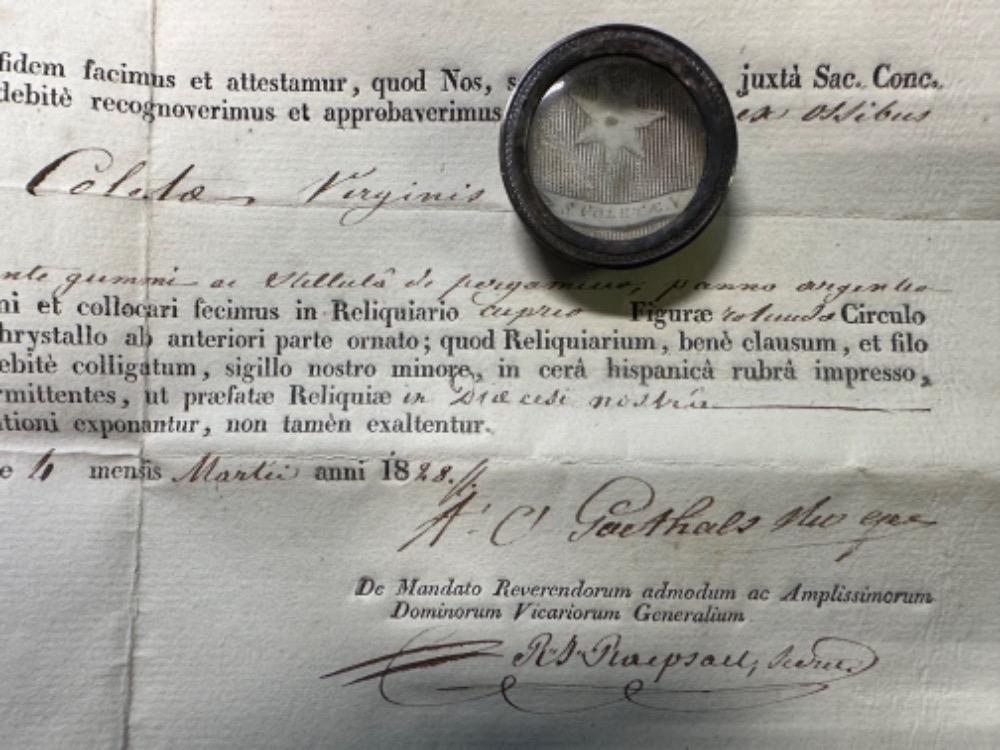 fidem facimus et attestamur, quod Nos, s juxtà Sac. Conc.
debitè recognoverimus et approbaverimus ex ossibus
Coletæ Virginis
S COLETÆ V
nte gummi ac Stellulâ de pergameno, panno argenteo
ni et collocari fecimus in Reliquiario cupreo Figuræ rotundæ Circulo
hrystallo ab anteriori parte ornato; quod Reliquiarium, benè clausum, et filo
ebitè colligatum, sigillo nostro minore, in cerâ hispanicâ rubrâ impresso,
rmittentes, ut præfatæ Reliquiæ in Diœcesi nostrâ
ationi exponantur, non tamèn exaltentur.
e 4 mensis Martii anni 1828.
A. C. Goethals
De Mandato Reverendorum admodum ac Amplissimorum
Dominorum Vicariorum Generalium
Raepsaet, Secret.